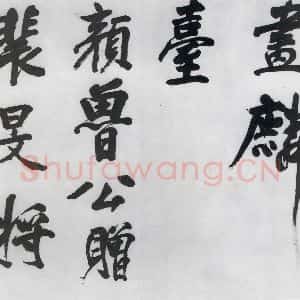 畫麟
臺
顏魯公贈
裴旻將
Shufawang.CN